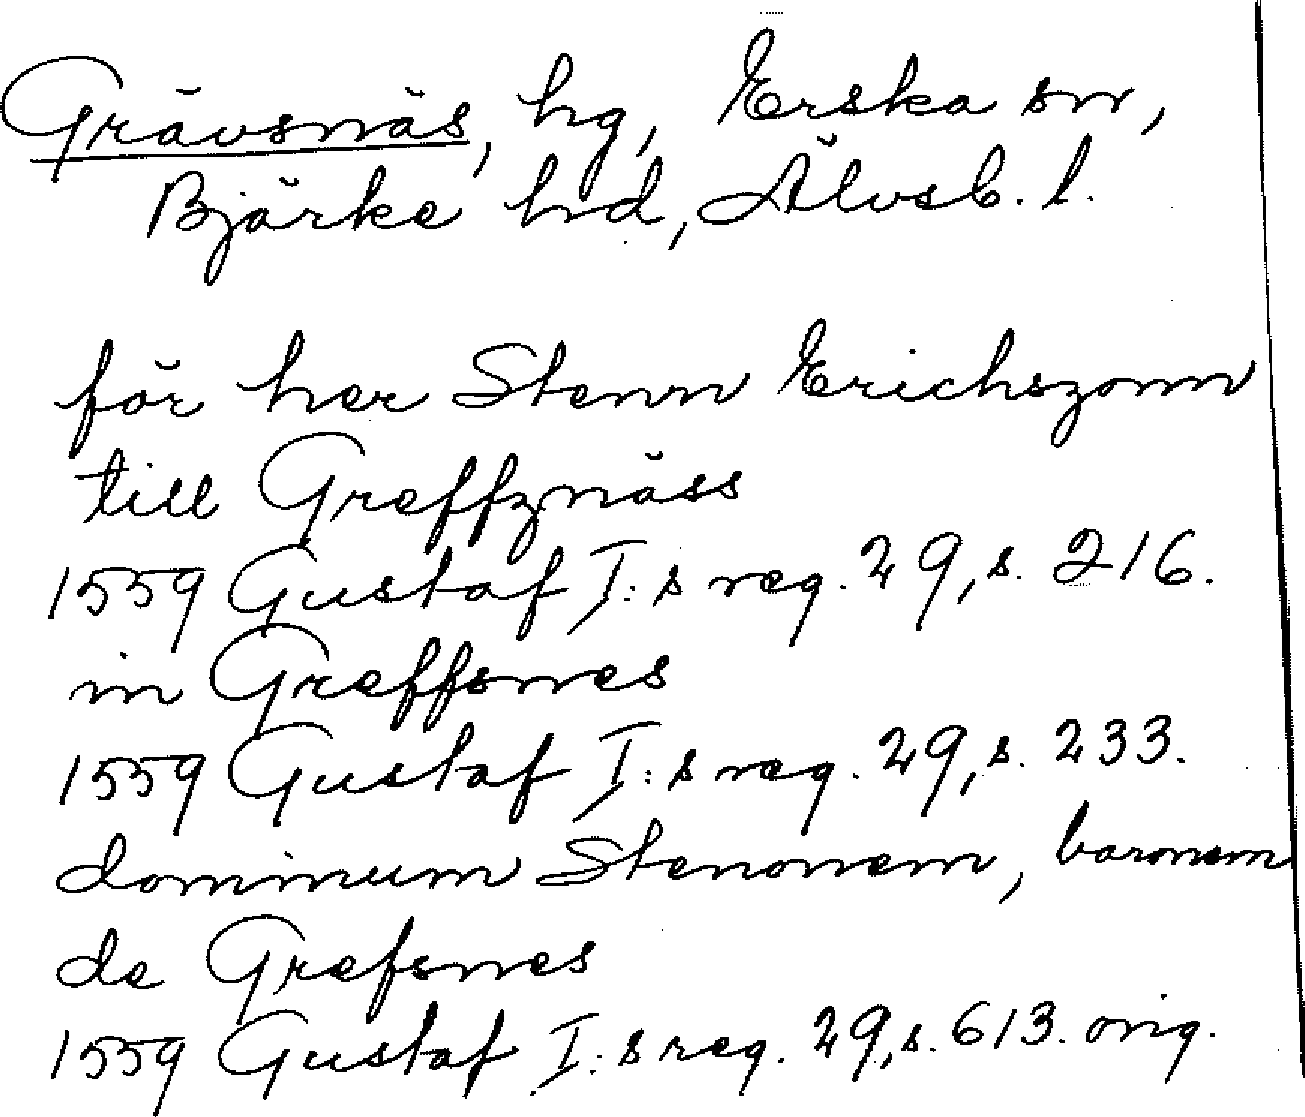 Grävsnäs, hg, Erska sn,
Bjärke hd, Älvsb. l.
för her Stenn Erichszonn
till Greffznäss
1559 Gustaf I:s reg. 29, s. 216.
in Greffsnes
1559 Gustaf I:s reg. 29, s. 233.
dominum Stenonem, baronem
de Grefsnes
1559 Gustaf I:s reg. 29, s. 613. orig.